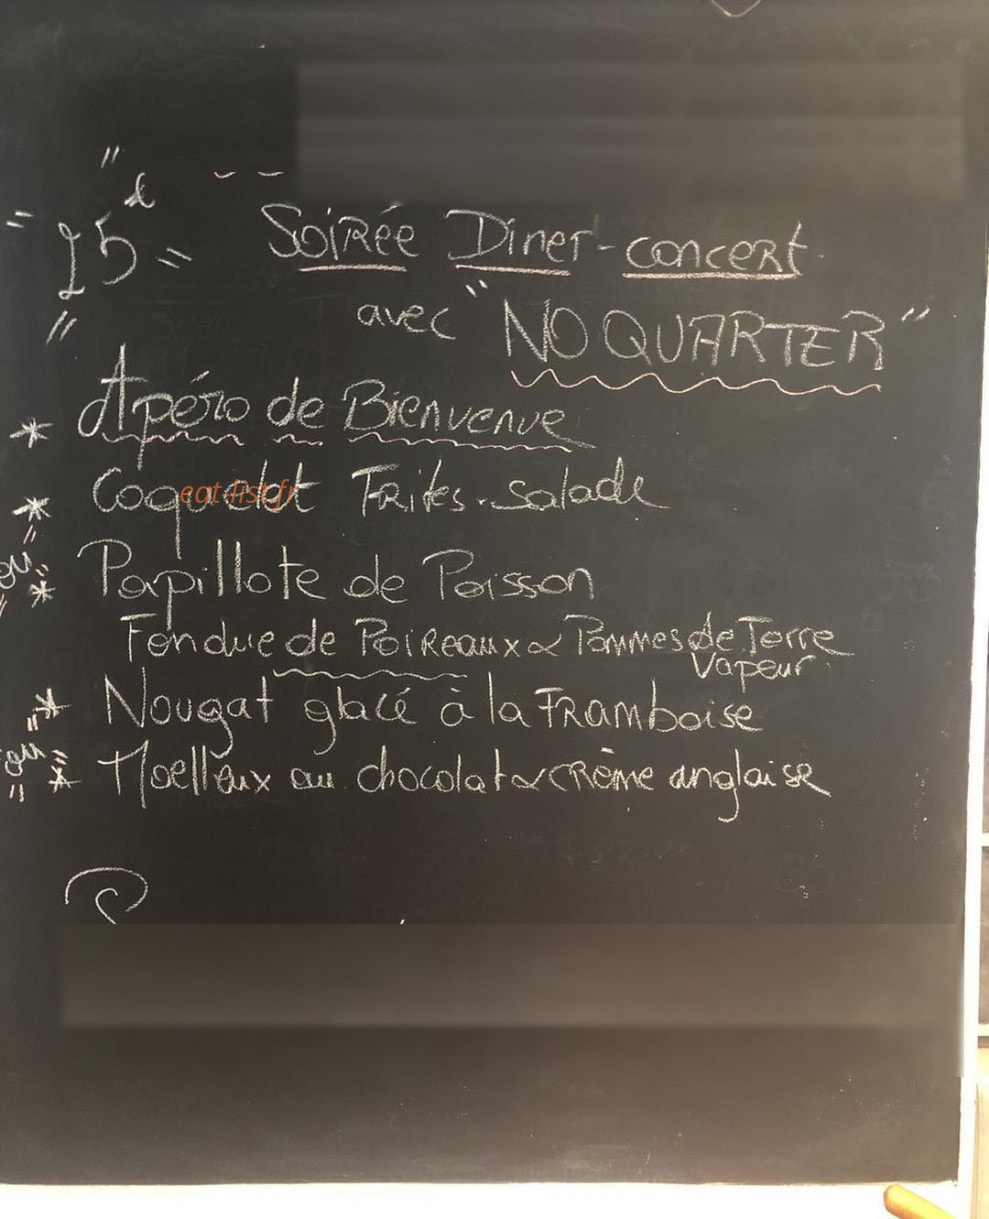 25€ Soirée Diner-concert
avec "NO QUARTER"
* Apéro de Bienvenue
* Coquelet Frites-Salade
ou * Papillote de Poisson
Fondue de Poireaux & Pommes de Terre
Vapeur
* Nougat glacé à la Framboise
ou * Moelleux au chocolat & crème anglaise
eat-list.fr